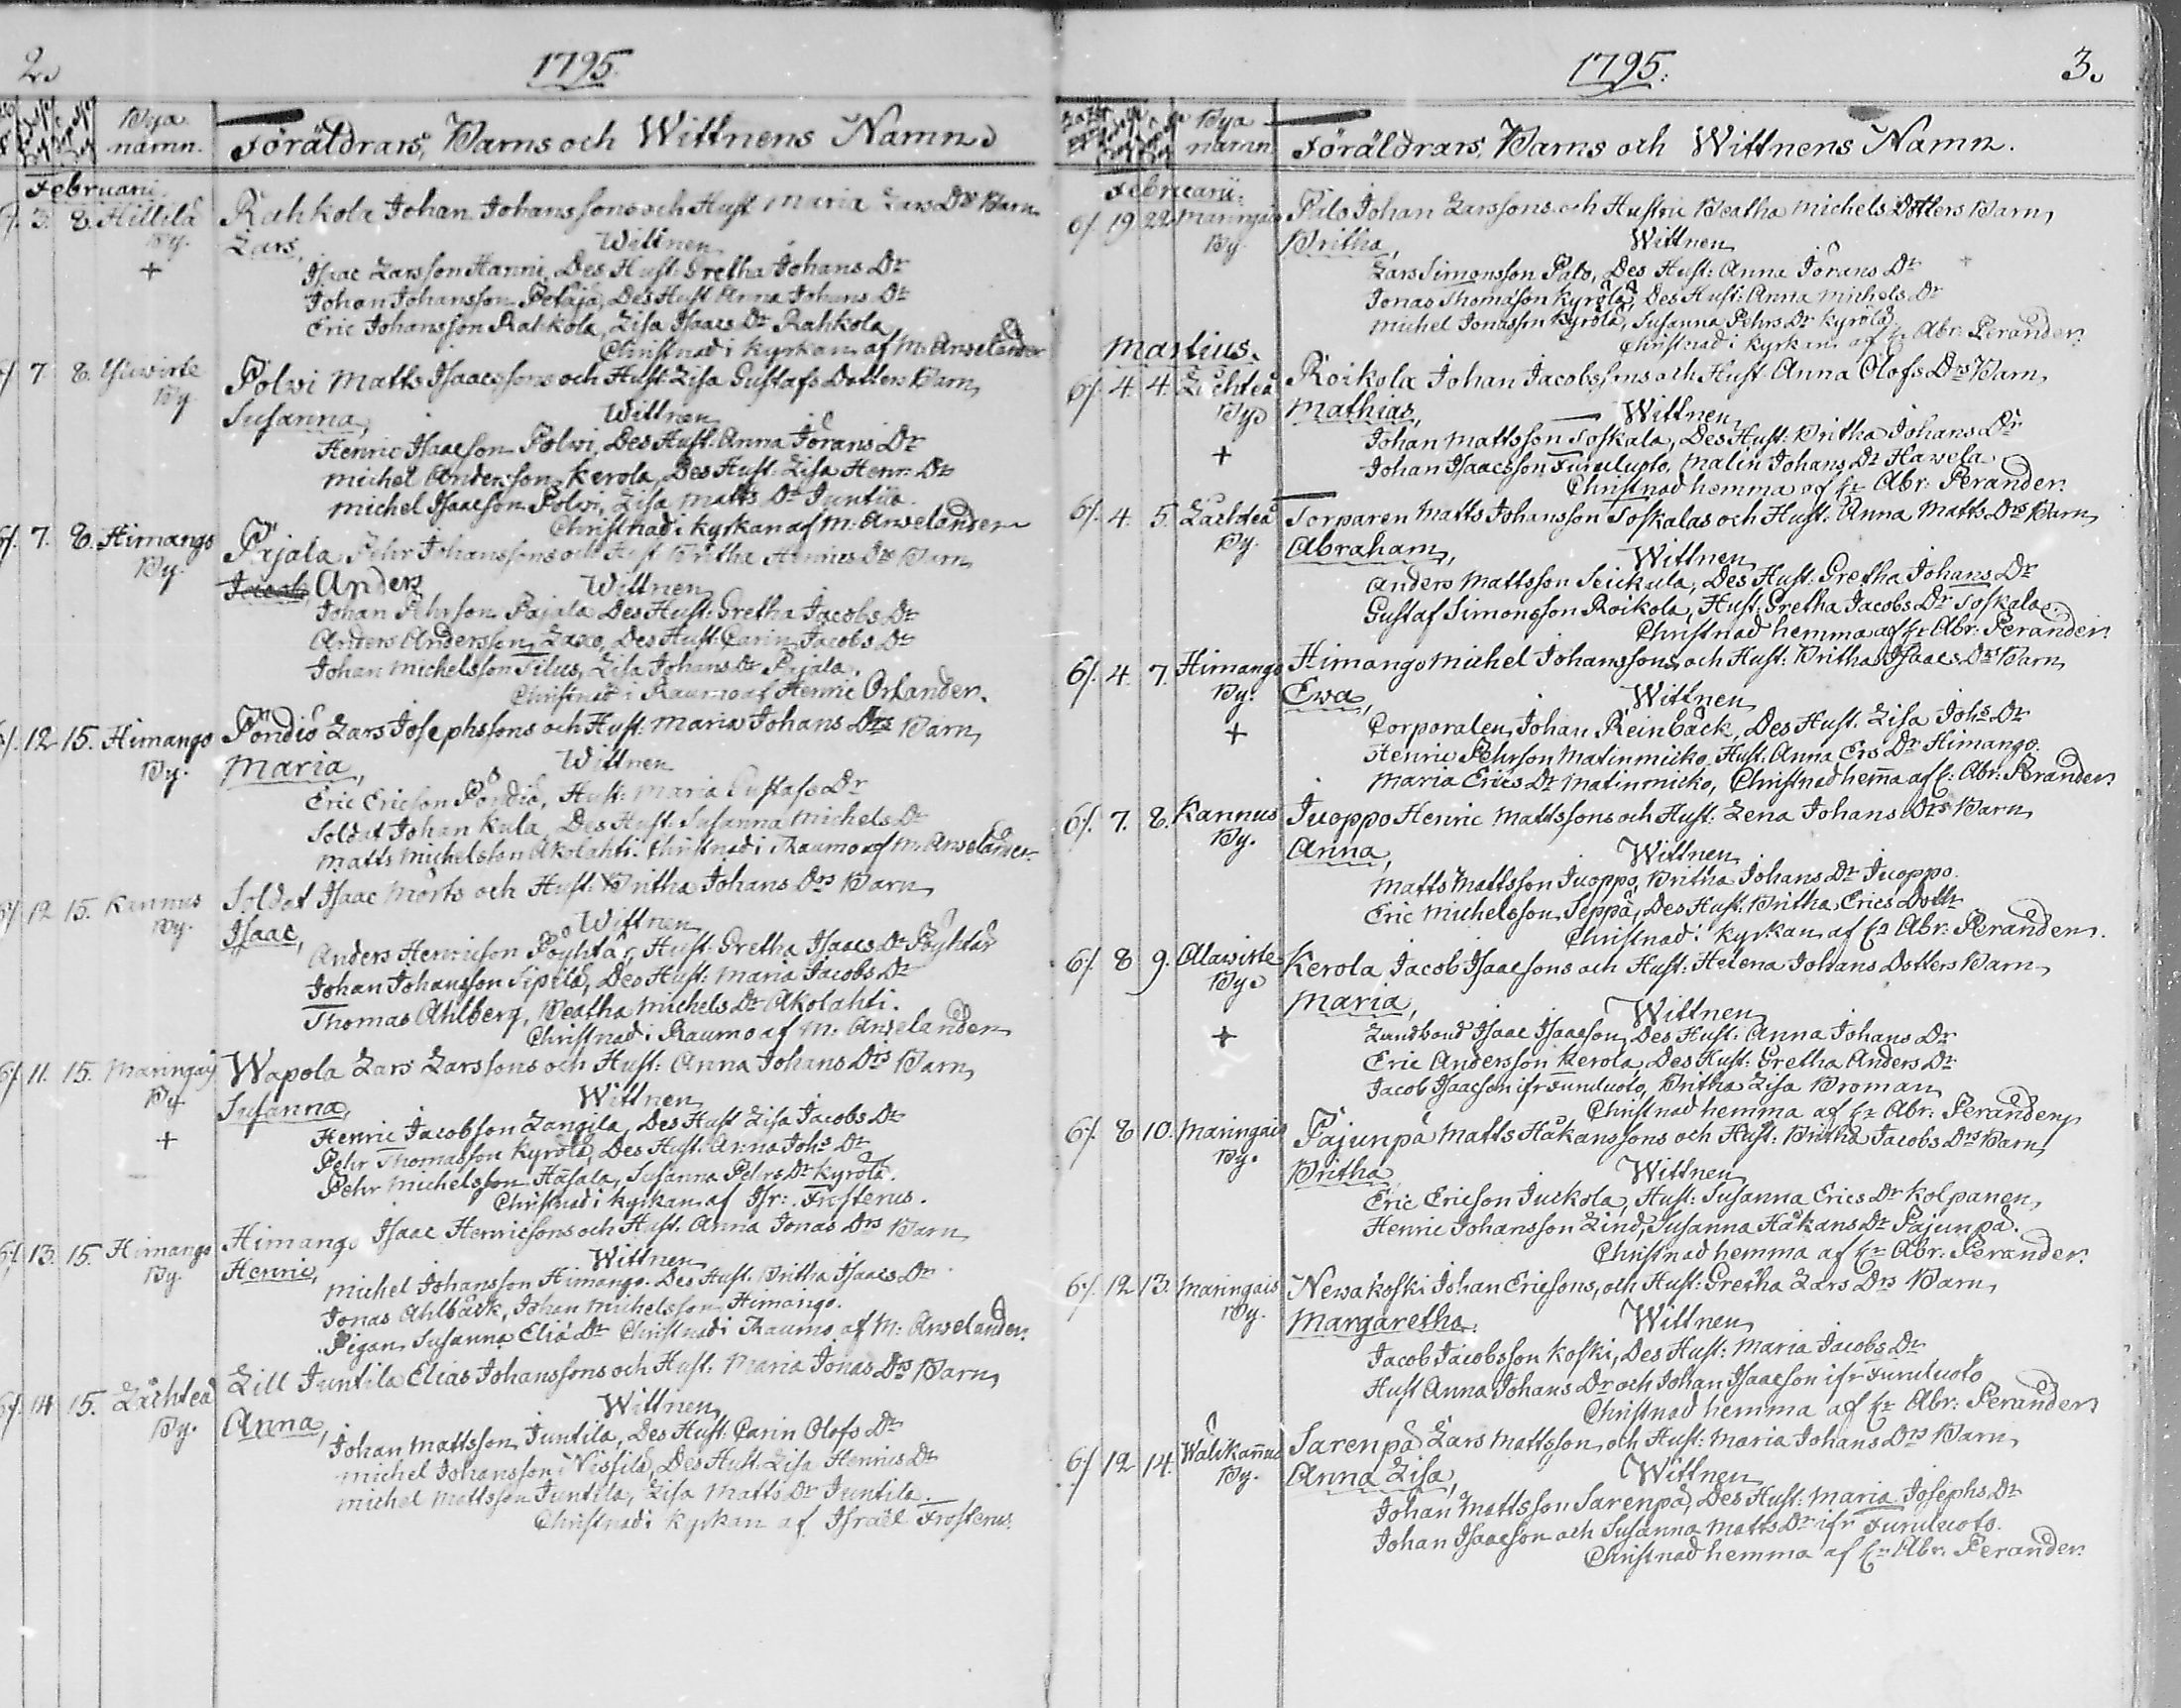 2.
1795.
Bya namn.
Föräldrars, Barns och Wittnens Namn
Februarii.
3. 8. Hillilä By. Rahkola Johan Johanssons och Hust Maria Lars Drs Barn
+ Lars, Wittnen
Isaac Larsson Hanni, Des Hust: Gretha Johans Dr
Johan Johansson Petäjä, Des Hust Anna Johans Dr
Eric Johansson Rahkola, Lisa Isaacs Dr Rahkola
Christnad i Kyrkan af M. Anselander
7. 8. Yliwirte By Polwi Matts Isaacssons och Hust: Lisa Gustafs Dotters Barn,
Susanna, Wittnen
Henric Isaacson Polwi, Des Hust: Anna Jörans Dr
Michel Andersson Kerola, Des Hust. Lisa Henr. Dr
Michel Isaacson Polwi, Lisa Matts Dr Juntila.
Christnad i Kyrkan af M. Anselander
6/. 7. 8. Himango By. Pajala Pehr Johanssons och Hust Britha Henrics Drs Barn
Jacob, Anders Wittnen
Johan Pehrson Pajala Des Hust: Gretha Jacobs Dr
Anders Andersson Laxo, Des Hust: Carin Jacobs Dr
Johan Michelsson Tilus, Lisa Johans Dr Pajala.
Christnad i Raumo af Henric Orlander.
6/. 12 15. Himango By. Pöndiö Lars Josephssons och Hust: Maria Johans Drs Barn,
Maria, Wittnen
Eric Ericson Pöndiö, Hust: Maria Gustafs Dr
Soldat Johan Kula, Des Hust Susanna Michels Dr
Matts Michelsson Akolahti. Christnad i Raumo af M. Anselander.
6/. 12 15. Kannus By. Soldat Isaac Mörts och Hust: Britha Johans Drs Barn
Isaac, Wittnen
Anders Henricson Pöyhtäri Hust: Gretha Isaacs Dr Pöyhtäri
Johan Johansson Sipilä, Des Hust: Maria Jacobs Dr
Thomas Ahlberg, Beatha Michels Dr Akolahti.
Christnad i Raumo af M. Anselander
6/. 11. 15. Maringais By Wapola Lars Larssons och Hust: Anna Johans Drs Barn,
+ Susanna, Wittnen
Henric Jacobson Langila, Des Hust Lisa Jacobs Dr
Pehr Thomasson Kyrölä, Des Hust. Anna Johs Dr
Pehr Michelsson Häsala, Susanna Pehrs Dr Kyrölä.
Christnad i Kyrkan af Isr: Frosterus.
6/. 13. 15. Himango By. Himango Isaac Henricsons och Hust. Anna Jonas Drs Barn
Henric, Wittnen
Michel Johansson Himango. Des Hust. Britha Isaacs Dr
Jonas Ahlbäck, Johan Michelsson Himango.
Pigan Susanna Eliä Dr Christnad i Raumo af M: Anselander.
6/. 14 15. Lächteä By. Lill Juntila Elias Johanssons och Hust: Maria Jonas Drs Barn,
Anna, Wittnen
Johan Mattsson Juntila, Des Hust: Carin Olofs Dr
Michel Johansson Nissilä, Des Hust: Lisa Henrics Dr
Michel Mattsson Juntila, Lisa Matts Dr Juntila.
Christnad i Kyrkan af Israël Frosterus.
1795. 3.
Bya namn
Föräldrars, Barns och Wittnens Namn.
Februarii.
6/. 19 22 Maringais By Palo Johan Larssons och Hustru Beatha Michels Dotters Barn,
Britha, Wittnen
Lars Simonsson Palo, Des Hust: Anna Jörans Dr
Jonas Thomasson Kyrölä, Des Hust: Anna Michels Dr
Michel Jonasson Kyrölä, Susanna Pehrs Dr Kyrölä,
Christnad i Kyrkan af Cr Abr. Perander.
Martius.
6/. 4. 4. Lächteä By Roikola Johan Jacobssons och Hust Anna Olofs Drs Barn,
Mathias, Wittnen
+ Johan Mattsson Toskala, Des Hust: Britha Johans Dr
Johan Isaacsson Furuluoto, Malin Johans Dr Hawela
Christnad hemma af Cr Abr: Perander.
6/. 4. 5. Lächteä By. Torparen Matts Johansson Toskalas och Hust: Anna Matts Drs Barn,
Abraham, Wittnen
Anders Mattsson Seickula, Des Hust: Gretha Johans Dr
Gustaf Simonsson Roikola, Hust: Gretha Jacobs Dr Toskala.
Christnad hemma af Cr Abr: Perander.
6/. 4. 7. Himango By. Himango Michel Johanssons och Hust: Britha Isaacs Drs Barn,
Ewa, Wittnen
+ Corporalen Johan Reinbäck, Des Hust. Lisa Johs Dr
Henric Pehrson Matinmicko, Hust. Anna Ers Dr Himango.
Maria Erics Dr Matinmicko, Christnad hem̄a af C: Abr: Perander
6/. 7. 8. Kannus By. Juoppo Henric Mattssons och Hust: Lena Johans Drs Barn
Anna, Wittnen
Matts Mattsson Juoppo, Britha Johans Dr Juoppo.
Eric Michelsson Seppä, Des Hust: Britha Erics Dottr
Christnad i Kyrkan af Cr Abr: Perander.
6/. 8 9. Alawirte By Kerola Jacob Isaacsons och Hust: Helena Johans Dotters Barn
Maria, Wittnen
+ Lundbond Isaac Isaacson, Des Hust. Anna Johans Dr
Eric Andersson Kerola, Des Hust: Gretha Anders Dr
Jacob Isaacson ifr Furuluoto, Britha Lisa Broman
Christnad hemma af Cr Abr: Perander
6/. 8 10. Maringais By. Pajunpä Matts Håkanssons och Hust: Britha Jacobs Drs Barn,
Britha Wittnen
Eric Ericson Juckola, Hust: Susanna Erics Dr Kolpanen,
Henric Johansson Lind, Susanna Håkans Dr Pajunpä.
Christnad hemma af Cr Abr: Perander.
6/. 12 13. Maringais By. Newakoski Johan Ericsons, och Hust: Gretha Lars Drs Barn,
Margaretha. Wittnen
Jacob Jacobsson Koski, Des Hust: Maria Jacobs Dr
Hust Anna Johans Dr och Johan Isaacson ifr Furuluoto
Christnad hemma af Cr Abr: Perander
6/. 12 14. Wälikan̄us By. Sarenpä Lars Mattsson och Hust: Maria Johans Drs Barn,
Anna Lisa, Wittnen
Johan Mattsson Sarenpä, Des Hust: Maria Josephs Dr
Johan Isaacson och Susanna Matts Dr ifr Furuluoto.
Christnad hemma af Cr Abr. Perander.